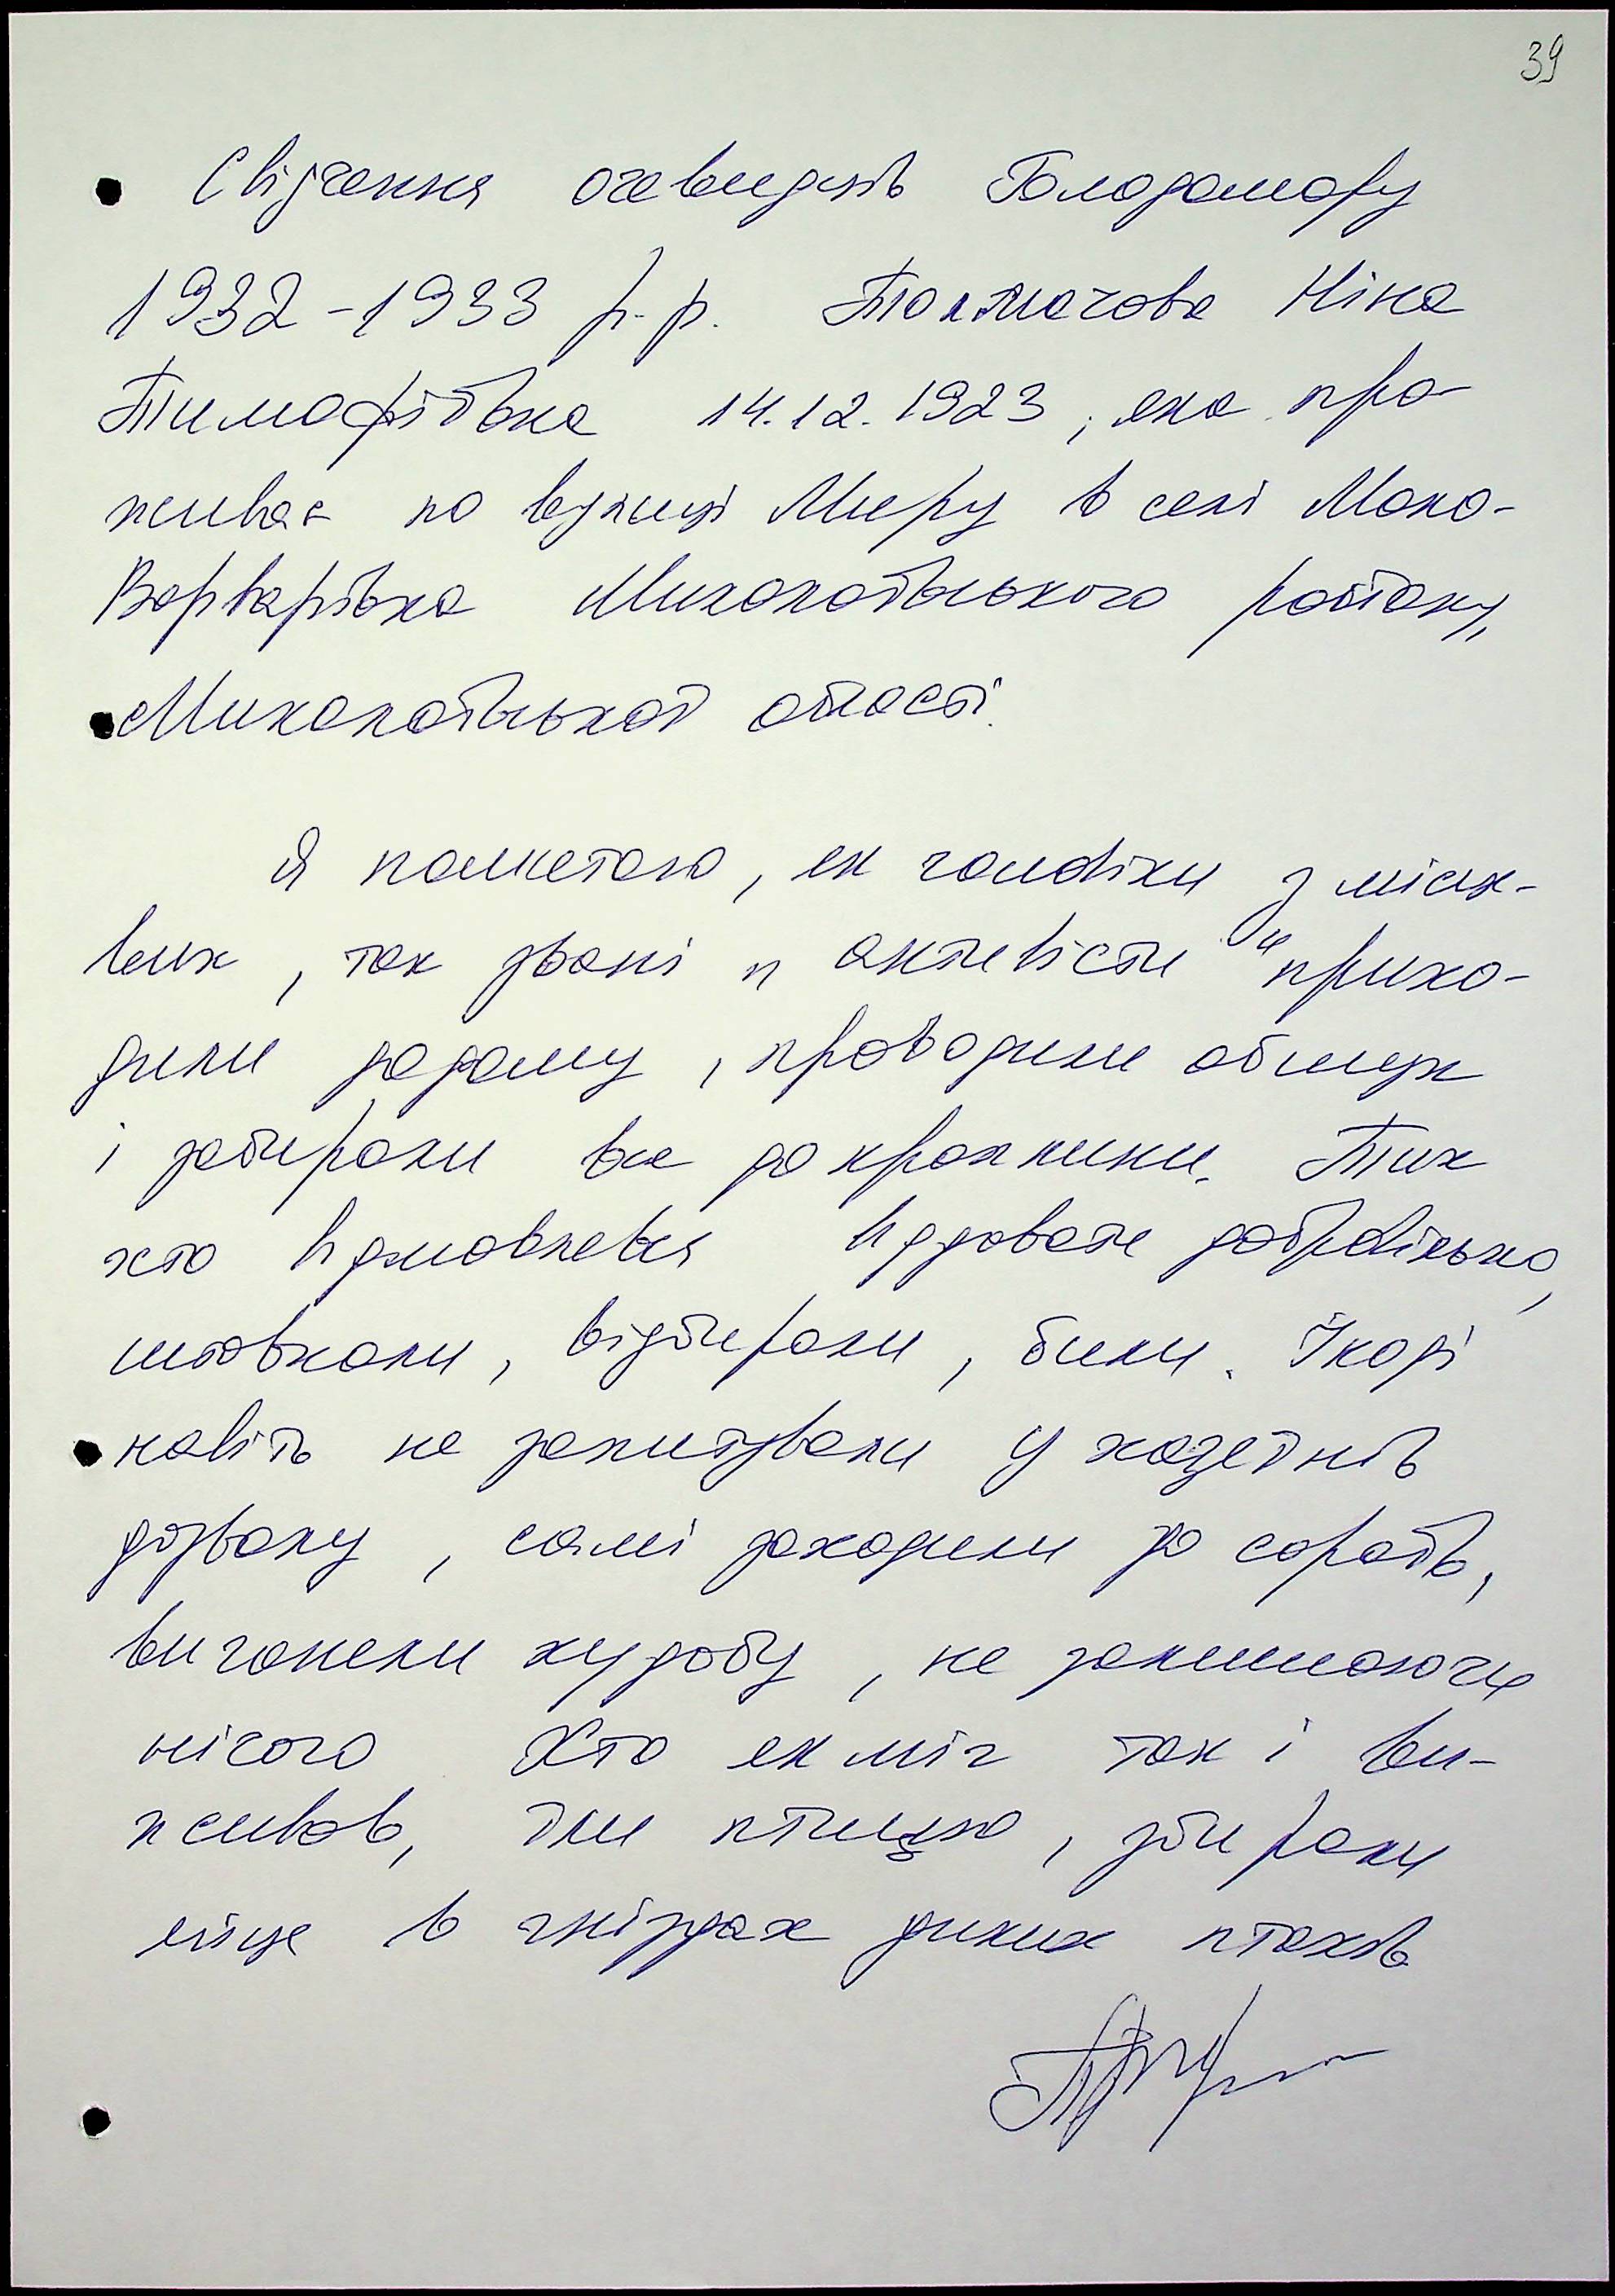 39
Свідчення очевидців Голодомору
1932-1933 р.р. Толмачова Ніна
Тимофіївна 14.12.1923, яка про
живає по вулиці Миру в селі Мало-
Варварівка Миколаївського району,
Миколаївської області.
Я пам'ятаю, як чоловіки з місце-
вих, так звані "активісти" прихо-
дили додому, проводили обшук
і забирали все до краплини. Тих
хто відмовлявся віддавати добровільно,
штовхали, відбирали, били. Інколи
навіть не запитували у хазяїнів
дозволу, самі заходили до сараїв,
виганяли худобу, не залишаючи
нічого Хто як міг так і ви-
живав, їли птицю, збирали
яйця в гніздах диких птахів